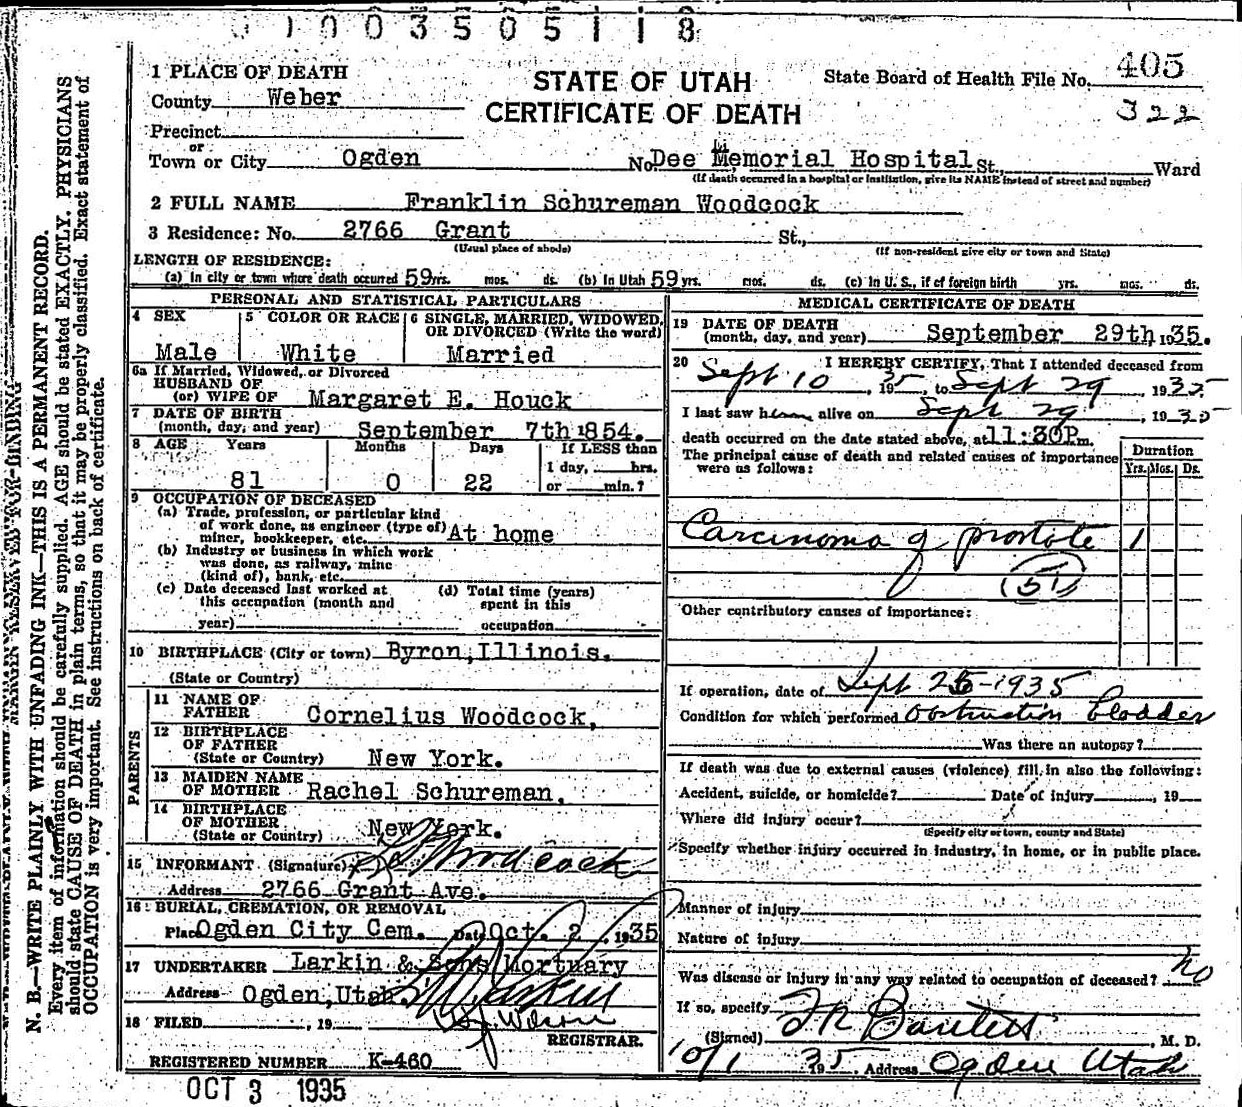 0 1 0 0 3 5 0 5 1 1 8
1 PLACE OF DEATH
STATE OF UTAH
CERTIFICATE OF DEATH
State Board of Health File No. 405
322
County Weber
Precinct
or
Town or City Ogden No. Dee Memorial Hospital St., Ward
(If death occurred in a hospital or institution, give its NAME instead of street and number)
2 FULL NAME Franklin Schureman Woodcock
3 Residence: No. 2766 Grant St.,
(Usual place of abode) (If non-resident give city or town and State)
LENGTH OF RESIDENCE:
(a) In city or town where death occurred 59 yrs. mos. ds. (b) In Utah 59 yrs. mos. ds. (c) In U. S., if of foreign birth yrs. mos. ds.
PERSONAL AND STATISTICAL PARTICULARS
4 SEX Male
5 COLOR OR RACE White
6 SINGLE, MARRIED, WIDOWED, OR DIVORCED (Write the word) Married
6a If Married, Widowed, or Divorced
HUSBAND OF
(or) WIFE OF Margaret E. Houck
7 DATE OF BIRTH
(month, day, and year) September 7th 1854.
8 AGE Years Months Days If LESS than
1 day, hrs.
81 0 22 or min.?
9 OCCUPATION OF DECEASED
(a) Trade, profession, or particular kind
of work done, as engineer (type of)
miner, bookkeeper, etc. At home
(b) Industry or business in which work
was done, as railway, mine
(kind of), bank, etc.
(c) Date deceased last worked at
this occupation (month and
year)
(d) Total time (years)
spent in this
occupation
10 BIRTHPLACE (City or town) Byron, Illinois.
(State or Country)
PARENTS
11 NAME OF
FATHER Cornelius Woodcock,
12 BIRTHPLACE
OF FATHER
(State or Country) New York.
13 MAIDEN NAME
OF MOTHER Rachel Schureman,
14 BIRTHPLACE
OF MOTHER
(State or Country) New York.
15 INFORMANT (Signature) Woodcock
Address 2766 Grant Ave.
16 BURIAL, CREMATION, OR REMOVAL
Place Ogden City Cem. Date Oct. 2, 1935
17 UNDERTAKER Larkin & Sons Mortuary
Address Ogden, Utah. Larkin
18 FILED , 19 Wilson
REGISTRAR.
REGISTERED NUMBER K-460
OCT 3 1935
MEDICAL CERTIFICATE OF DEATH
19 DATE OF DEATH
(month, day, and year) September 29th 1935.
20 I HEREBY CERTIFY, That I attended deceased from
Sept 10, 1935, to Sept 29, 1935
I last saw him alive on Sept 29, 1935
death occurred on the date stated above, at 11:30P m.
The principal cause of death and related causes of importance
were as follows:
Duration
Yrs. Mos. Ds.
Carcinoma of prostate 1
(51)
Other contributory causes of importance:
If operation, date of Sept 25-1935
Condition for which performed Obstruction bladder
Was there an autopsy?
If death was due to external causes (violence) fill in also the following:
Accident, suicide, or homicide? Date of injury , 19
Where did injury occur?
(Specify city or town, county and State)
Specify whether injury occurred in industry, in home, or in public place.
Manner of injury
Nature of injury
Was disease or injury in any way related to occupation of deceased? No
If so, specify
(Signed) , M. D.
10/1 1935 Address Ogden Utah
MARGIN RESERVED FOR BINDING
N. B.—WRITE PLAINLY WITH UNFADING INK—THIS IS A PERMANENT RECORD.
Every item of information should be carefully supplied. AGE should be stated EXACTLY. PHYSICIANS
should state CAUSE OF DEATH in plain terms, so that it may be properly classified. Exact statement of
OCCUPATION is very important. See instructions on back of certificate.